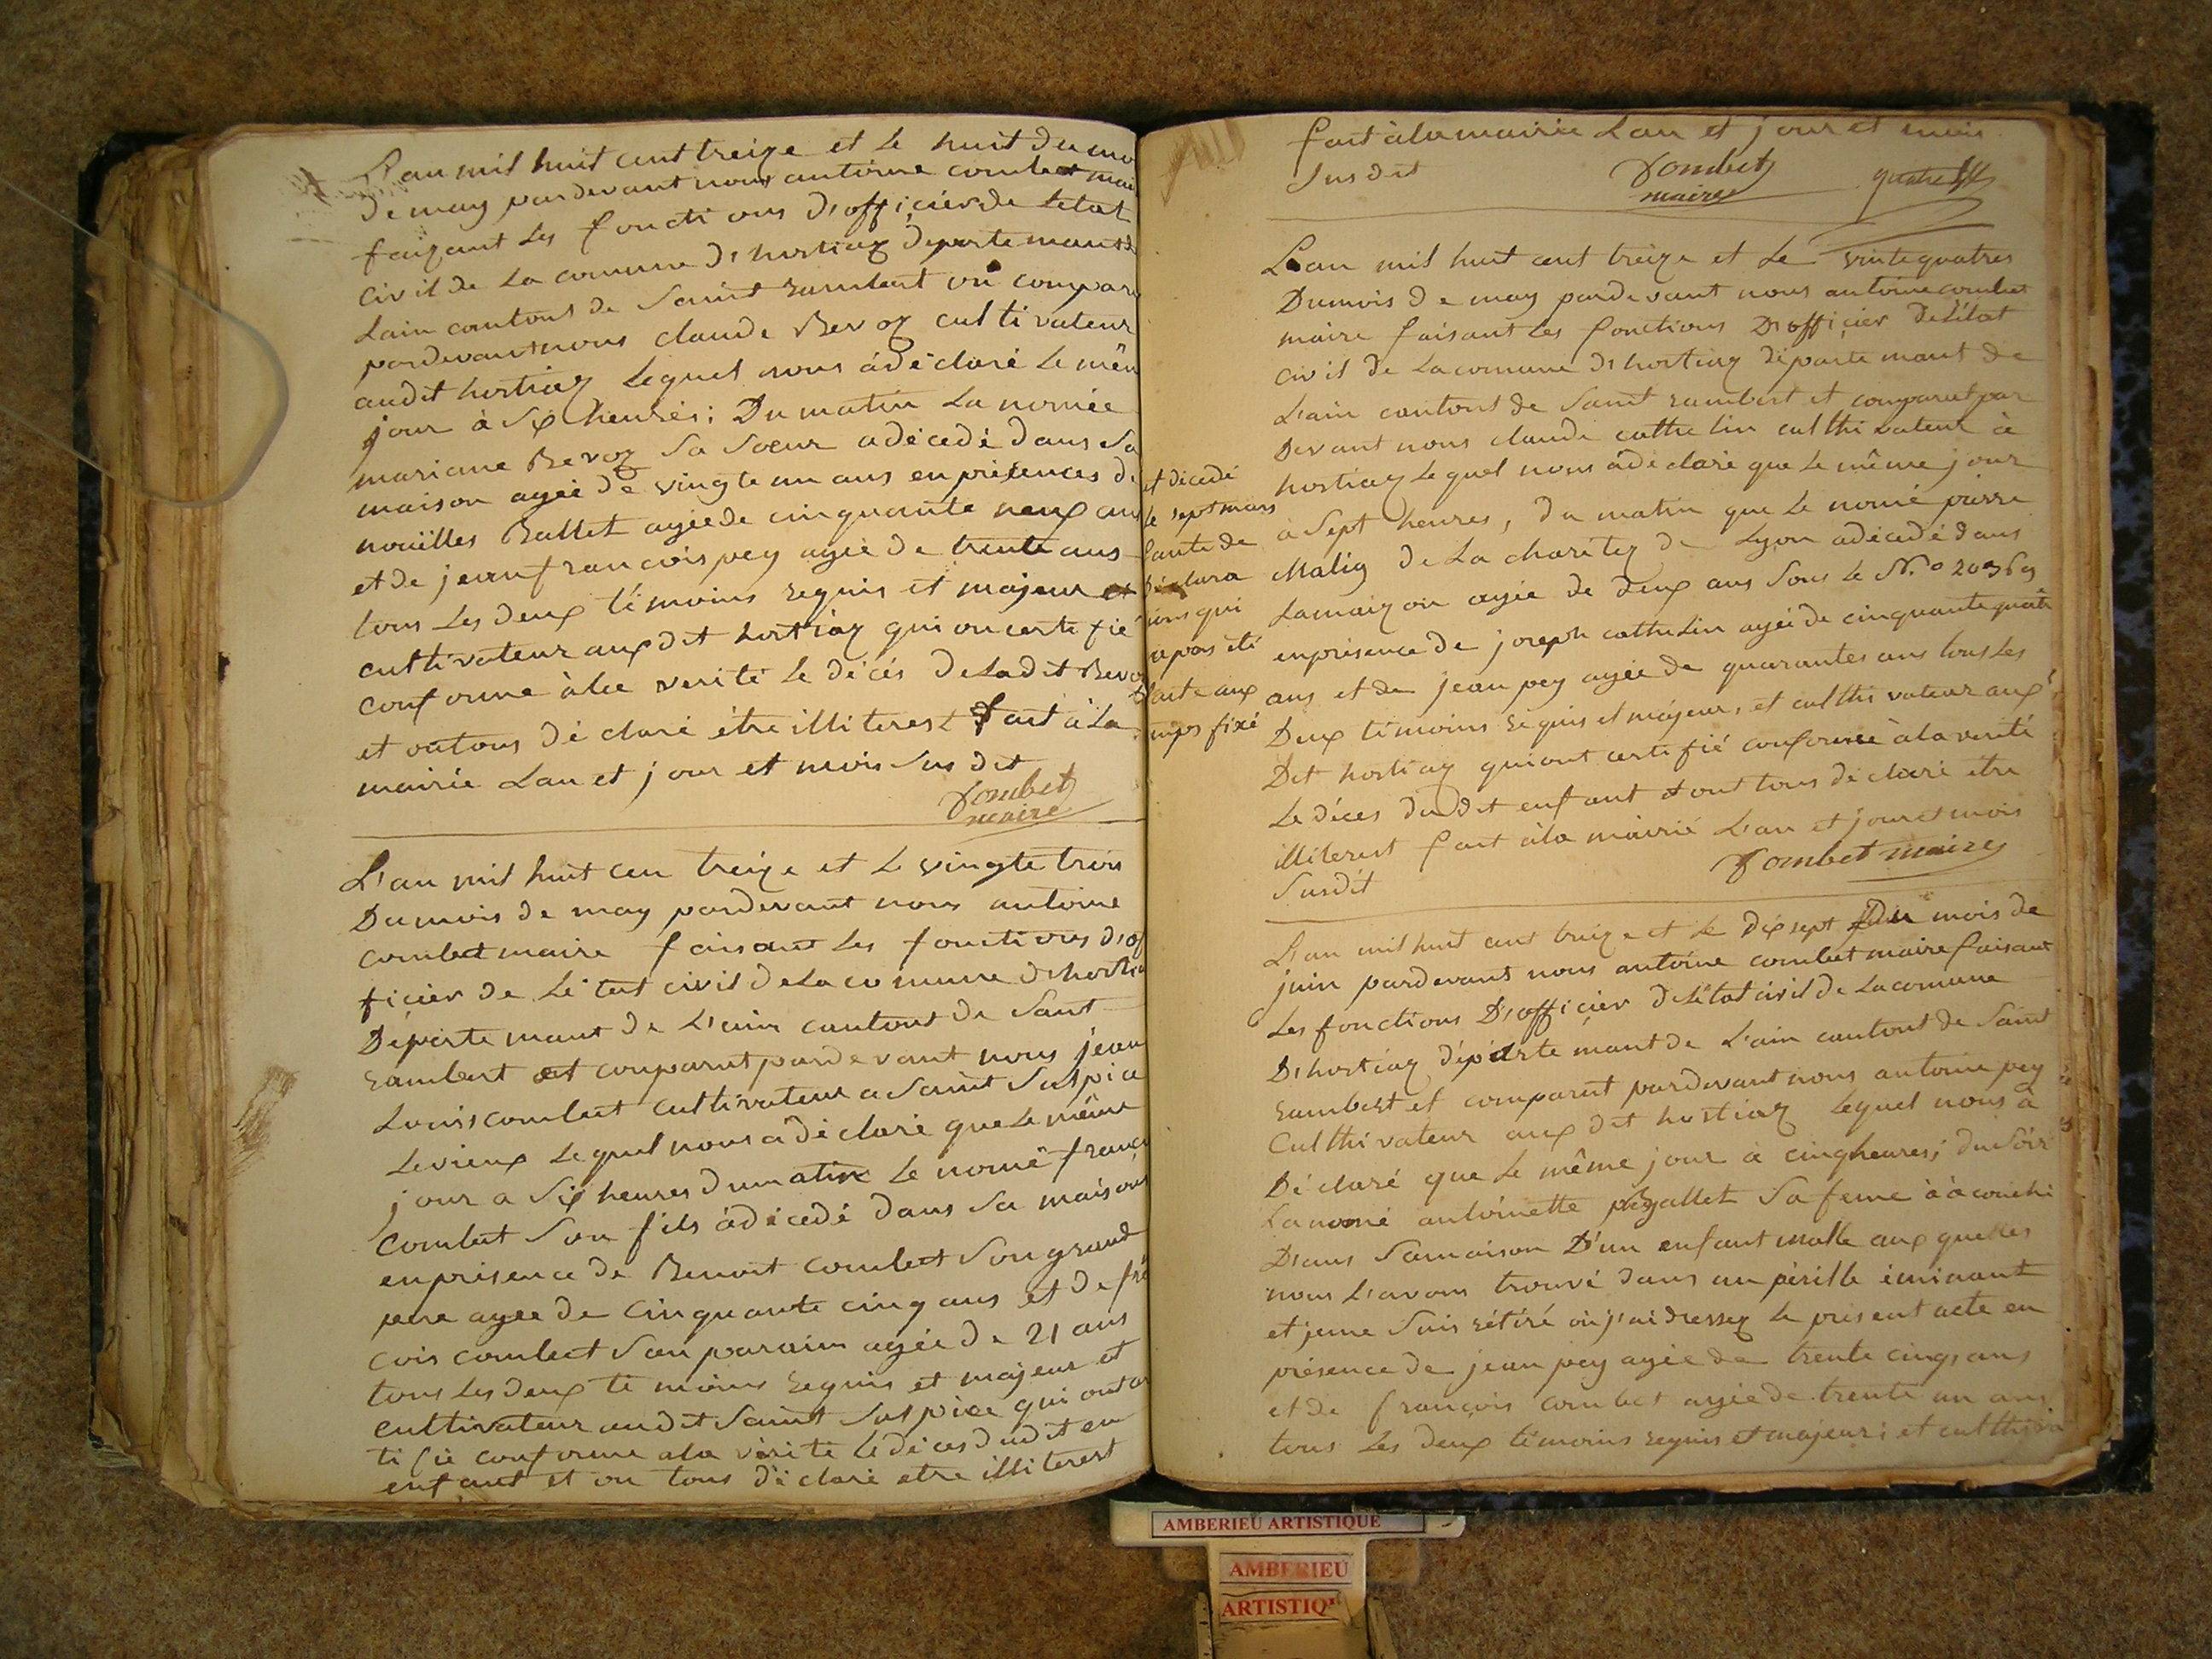 L'an mil huit cent treize et Le huit du mo
de may pardevant nous antoine combet mai
faizant Les foncti ons d'officier de Letat
civil de La comune d'hostiaz departemant d
Lain contont de Saint rambert on compar
pardevant nous claude Bevoz cultivateur
audit hostiaz Lequel nous a déclaré Le mêm
jour à Six heures; Du matin La nomée
mariane Bevoz Sa Soeur a décedé dans Sa
maison agée de vingte un ans en présences de
Ballet agée de cinquante neuf ans
et de jeanfrancois pey agée de trente ans
tous Les deux témoins requis et majeur et
cultivateur aux dit hostiaz qui on certifié
conforme à la verité Le décés de Ladit Bevoz
et on tous dé claré être illiterest fait à La
mairie Lan et jour et mois Sus dit
Combet
maire
L'an mil huit cen treize et Le vingte trois
Du mois de may pardevant nous antoine
combet maire faisant Les fonctions d'of
ficier de Lé tat civil de La co mune d'hostia
Departe mant de L'ain contont de Saint
rambert et comparut parde vant nous jean
Louis combet cultivateur a Saint Sulpice
Levieux Lequel nous a dé claré que Le même
jour a Six heures du matin Le nomé franç
combet Son fils à décédé dans Sa maison
en présence de Benoit combet Son grand
pere agée de cinquante cinq ans et de fran
cois combet Son parain agée de 21 ans
tous Les deux té moins requis et majeur et
cultivateur audit Saint Sulpice qui ont cer
ti fié conforme a la vérité Le déces dudit en
enfant et on tous dé claré etre illiterest
fait à la mairie Lan et jour et mois
Susdit
Combet
maire
L'an mil huit cent treize et Le vintequatres
Du mois de may pardevant nous antoine combet
maire faisant Les fonctions D'officier De L'état
civil de La comune d'hostiaz départe mant de
L'ain contont de Saint rambert et comparut par
Devant nous claude cathelin culthivateur à
hostiaz Lequel nous à déclaré que Le même jour
à Sept heures, du matin que Le nomé pierre
Malig de La charitez de Lyon a décédé dans
La maizon agée de deux ans Sous Le N.o 20969
en présence de joseph cathelin agée de cinquante quatr
ans et de jean pey agée de quarantes ans tous Les
Deux témoins requis et májeur, et culthi vateur aux
Dit hostiaz qui ont certifié conforme à la verité
Le déces du dit enfant et ont tous dé claré etre
illiterest fait à la mairié L'an et jour et mois
Susdit
Combet maire
et décedé
le sept mars
faute de
déclara
tions qui
n'a pas été
faite aux
temps fixé
L'an mil huit cent treize et Le dix sept du mois de
juin pardevant nous antoine combet maire faisant
Les fonctions D'officier de L'état civil de La comune
D'hostiaz départe mant de L'ain contont de Saint
rambert et comparut pardevant nous antoine pey
Culthivateur aux dit hostiaz Lequel nous à
Dé claré que Le même jour à cinq heures; du Soir
La nomé antoinette Ballet Sa feme à acouché
D'ans Sa maison D'un enfant malle aux quelles
nous L'avons trouvé dans un pérille éminant
et je me Suis rétiré où j'ai dressez Le présent acte en
présence de jean pey agée de trente cinq ans
et de françois combet agée de trente un ans
tous Les deux témoins requis et majeur; et culthiva
AMBERIEU ARTISTIQUE
AMBERIEU
ARTISTIQ